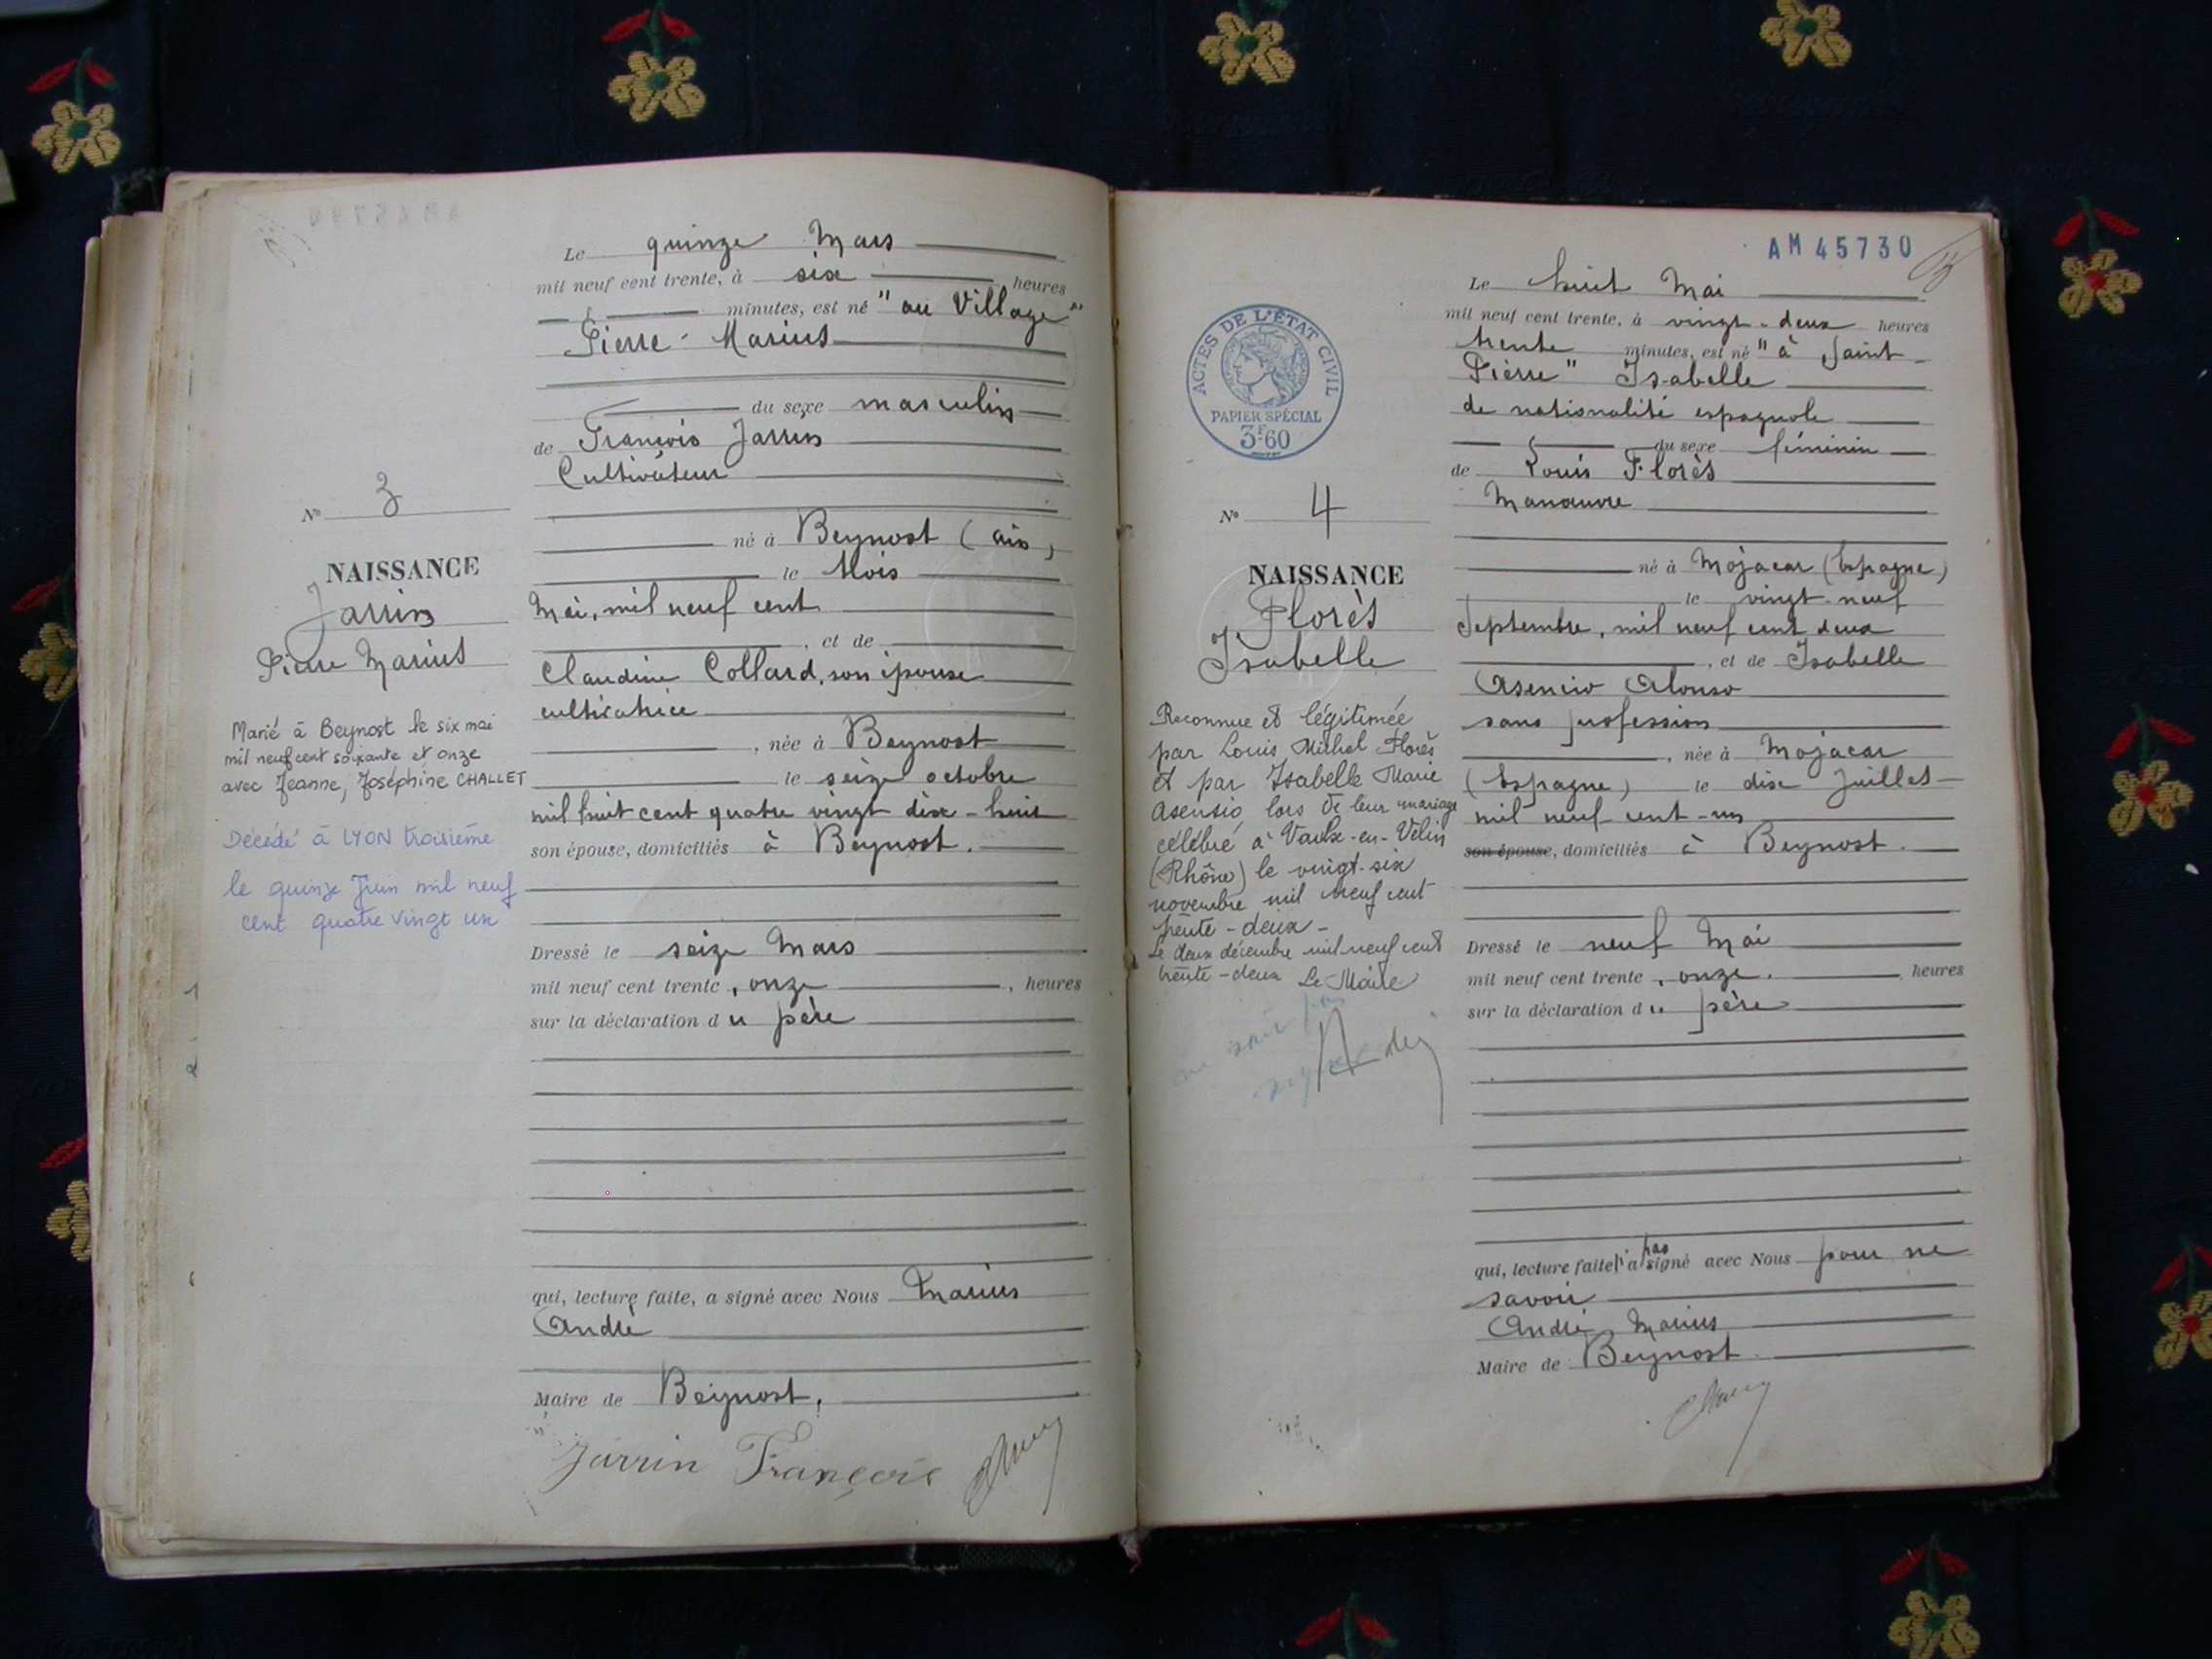 Le quinze Mars
mil neuf cent trente, à six heures
minutes, est né "au Village"
Pierre - Marius
du sexe masculin
de François Jarrin
Cultivateur
né à Beynost (ain)
le trois
Mai, mil neuf cent
, et de
Claudine Collard, son épouse
cultivatrice
, née à Beynost
le seize octobre
mil huit cent quatre vingt dix-huit
son épouse, domiciliés à Beynost.
Dressé le seize Mars
mil neuf cent trente, onze, heures
sur la déclaration du père
qui, lecture faite, a signé avec Nous Marius
André
Maire de Beynost,
Jarrin François
No 3
NAISSANCE
Jarrin
Pierre Marius
Marié à Beynost le six mai
mil neuf cent soixante et onze
avec Jeanne, Joséphine CHALLET
Décédé à LYON troisième
le quinze Juin mil neuf
cent quatre vingt un
AM45730
Le huit Mai
mil neuf cent trente, à vingt-deux heures
trente minutes, est né "à Saint-
Pierre" Isabelle
de nationalité espagnole
du sexe féminin
de Louis Florès
Manœuvre
né à Mojacar (Espagne)
le vingt-neuf
Septembre, mil neuf cent deux
, et de Isabelle
Asencio Alonso
sans profession
, née à Mojacar
(Espagne) le dix Juillet
mil neuf cent-un
son épouse, domiciliés à Beynost.
Dressé le neuf Mai
mil neuf cent trente, onze. heures
sur la déclaration du père
qui, lecture faite, n'a pas signé avec Nous pour ne
savoir
André Marius
Maire de Beynost
ACTES DE L'ÉTAT CIVIL
PAPIER SPÉCIAL
3F60
No 4
NAISSANCE
Florès
Isabelle
Reconnue et légitimée
par Louis Michel Florès
et par Isabelle Marie
Asensio lors de leur mariage
célébré à Vaulx-en-Velin
(Rhône) le vingt-six
novembre mil neuf cent
trente-deux-
Le deux décembre mil neuf cent
trente-deux Le Maire